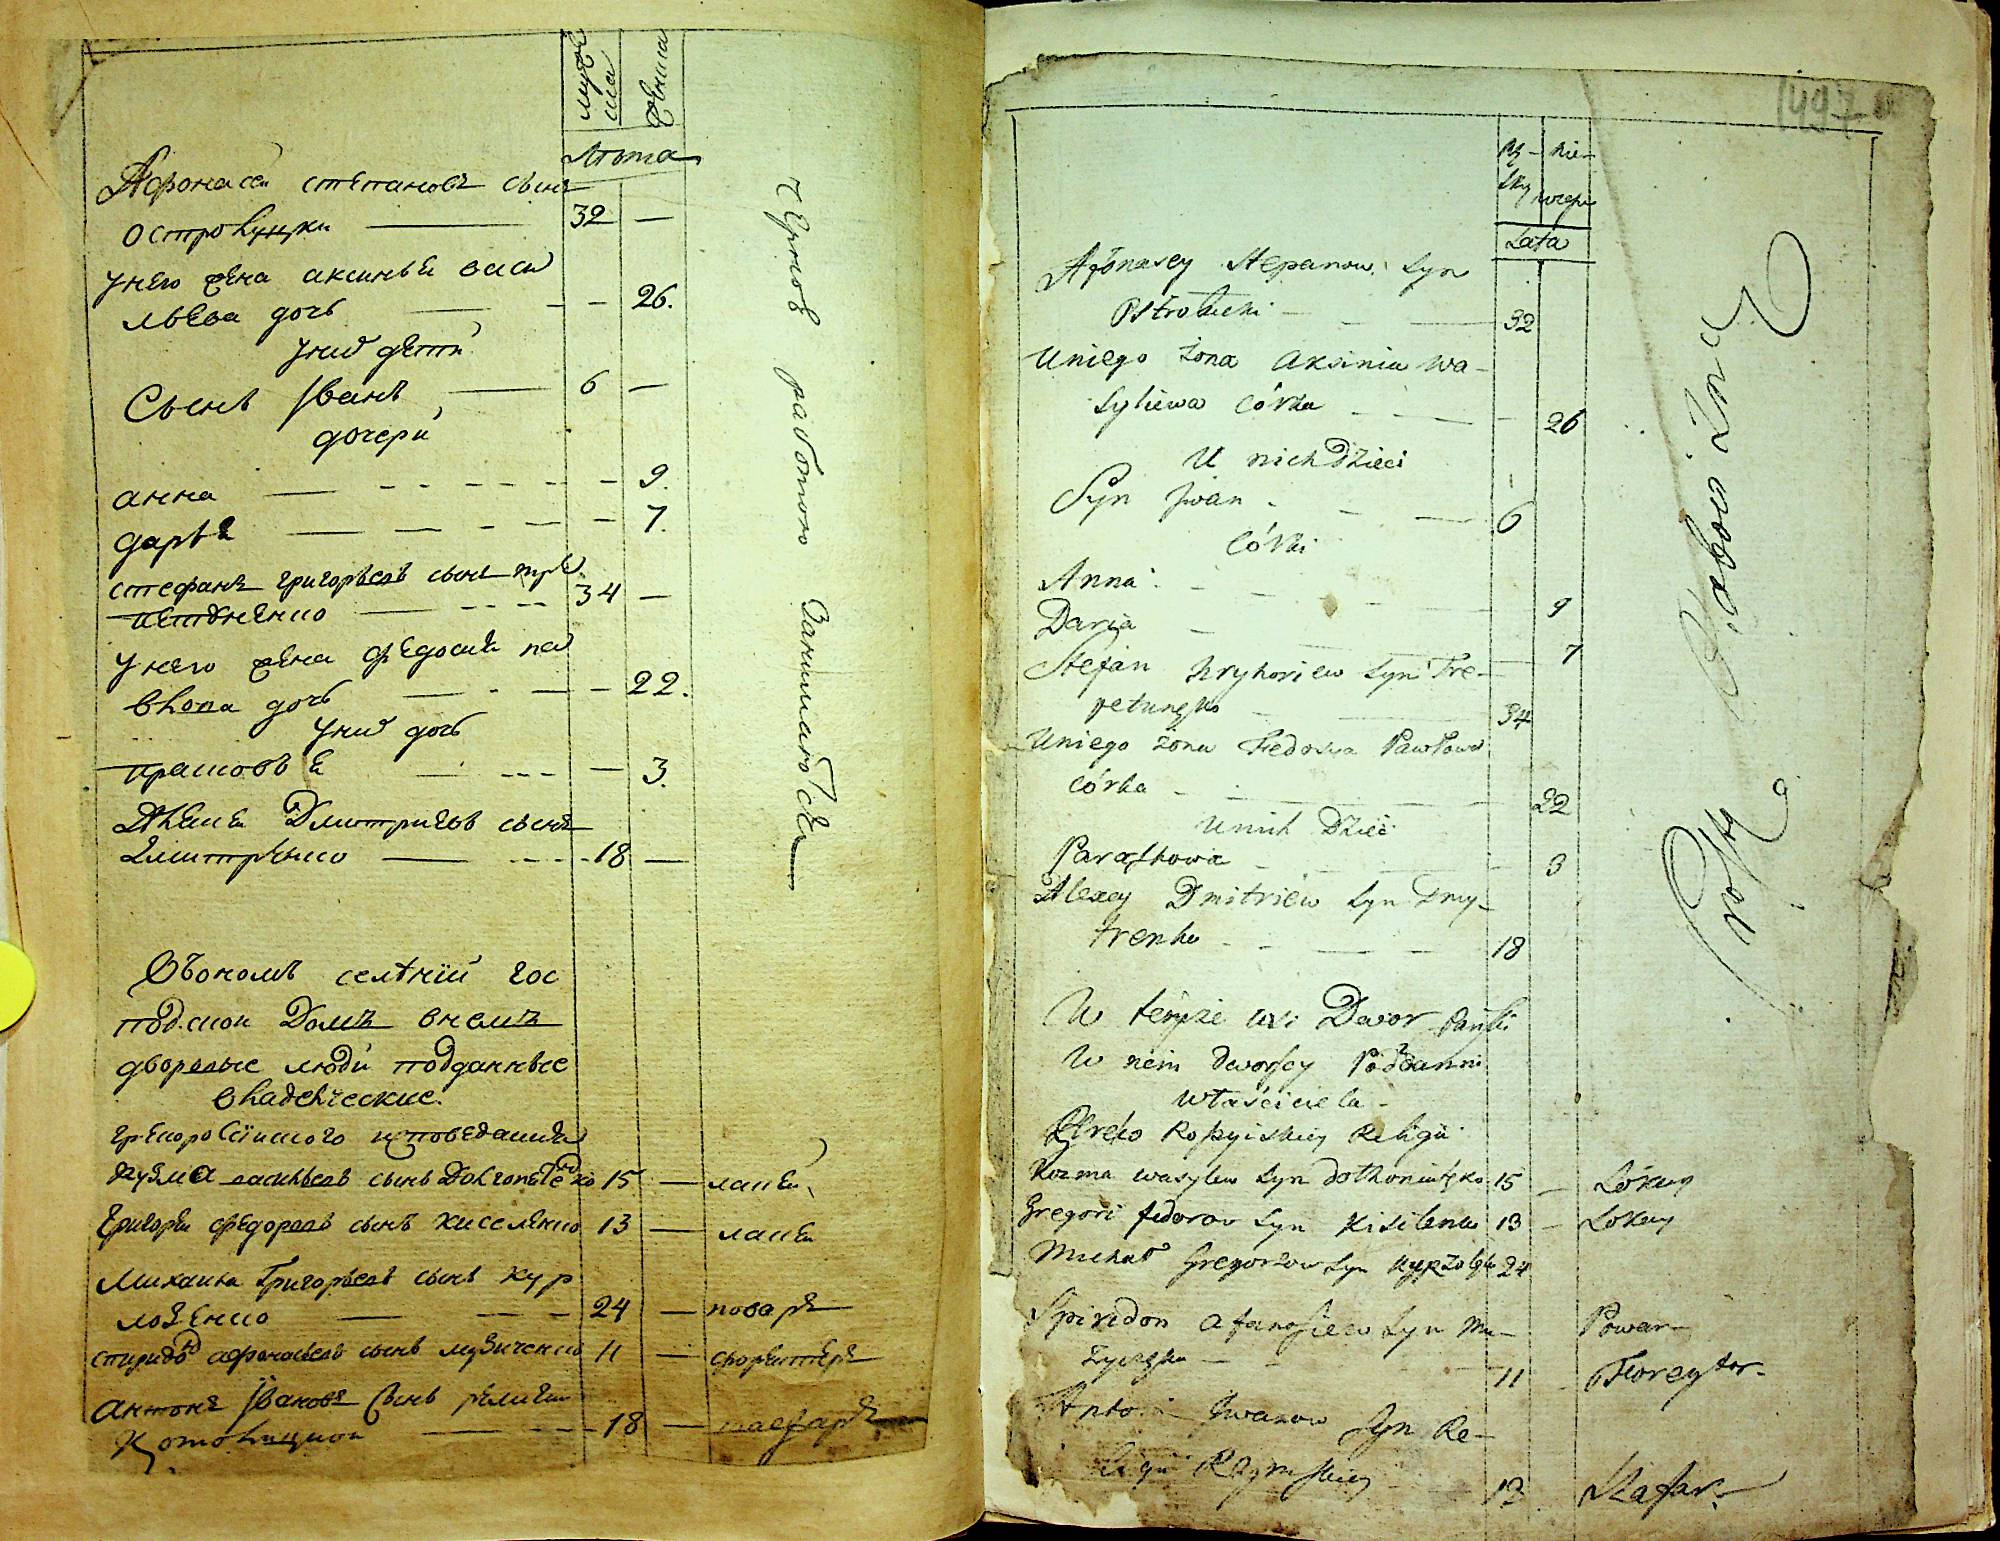 мужеска
женска
Лѣта
Афонасеи степановъ сынъ
островуцки — 32 —
унего жена аксинья васи
льева дочь — — 26.
уних дети
Сынъ Іванъ — 6 —
дочери
анна — — 9.
дарья — — 7.
стефанъ григорьевъ сынъ тре
петоненко — 34 —
унего жена федосия па
влова дочь — — 22.
уних дочь
прасковья — — 3.
Алексеи Дмитриевъ сынъ
дмитренко — 18 —
Въономъ селѣнии гос
подскои Домъ внемъ
дворовые люди подданные
владелческие.
грекоросіиского исповедания
кузма васильевъ сынъ 15 — лакеи
григореи федоровъ сынъ киселенко 13 — лакеи
Михаила Григорьевъ сынъ кур
ложенко — 24 — поваръ
спиридонъ афонасьевъ сынъ музиченко 11 — форейтеръ
антонъ Івановъ сынъ религии
католицкои — 18 —
черною работою Занимаются
Mę- Nie-
sky wieście
Lata
Afónasey Stepanow Syn
Ostrolucki — 32
Uniego żona Aksinia Wa-
syliewa córka — 26
U nich Dzieci
Syn Jwan — 6
Córki
Anna — 9
Daria — 7
Stefan hryhoriew Syn Tre-
petunęko — 34
Uniego żona Fiedosia Pawłowa
córka — 22
Unich Dzieć
Paraskowia — 3
Alexey Dmitriew Syn Dmy-
trenko — 18
W teyże wsi Dwor Pański
W nim dworscy Poddanni
Właściciela
Greko Rossyiskiey Religii
Kozma Wasylew Syn 15 — Lokay
Gregori fedorow Syn Kisilenko 13 — Lokay
Michał Gregorzow Syn 24
Spiridon Afanasiew Syn Mu- Powar
zyczęko — 11 Floreytor
Antoni Jwanow Syn Re-
ligii Rzymskiey — Szafar